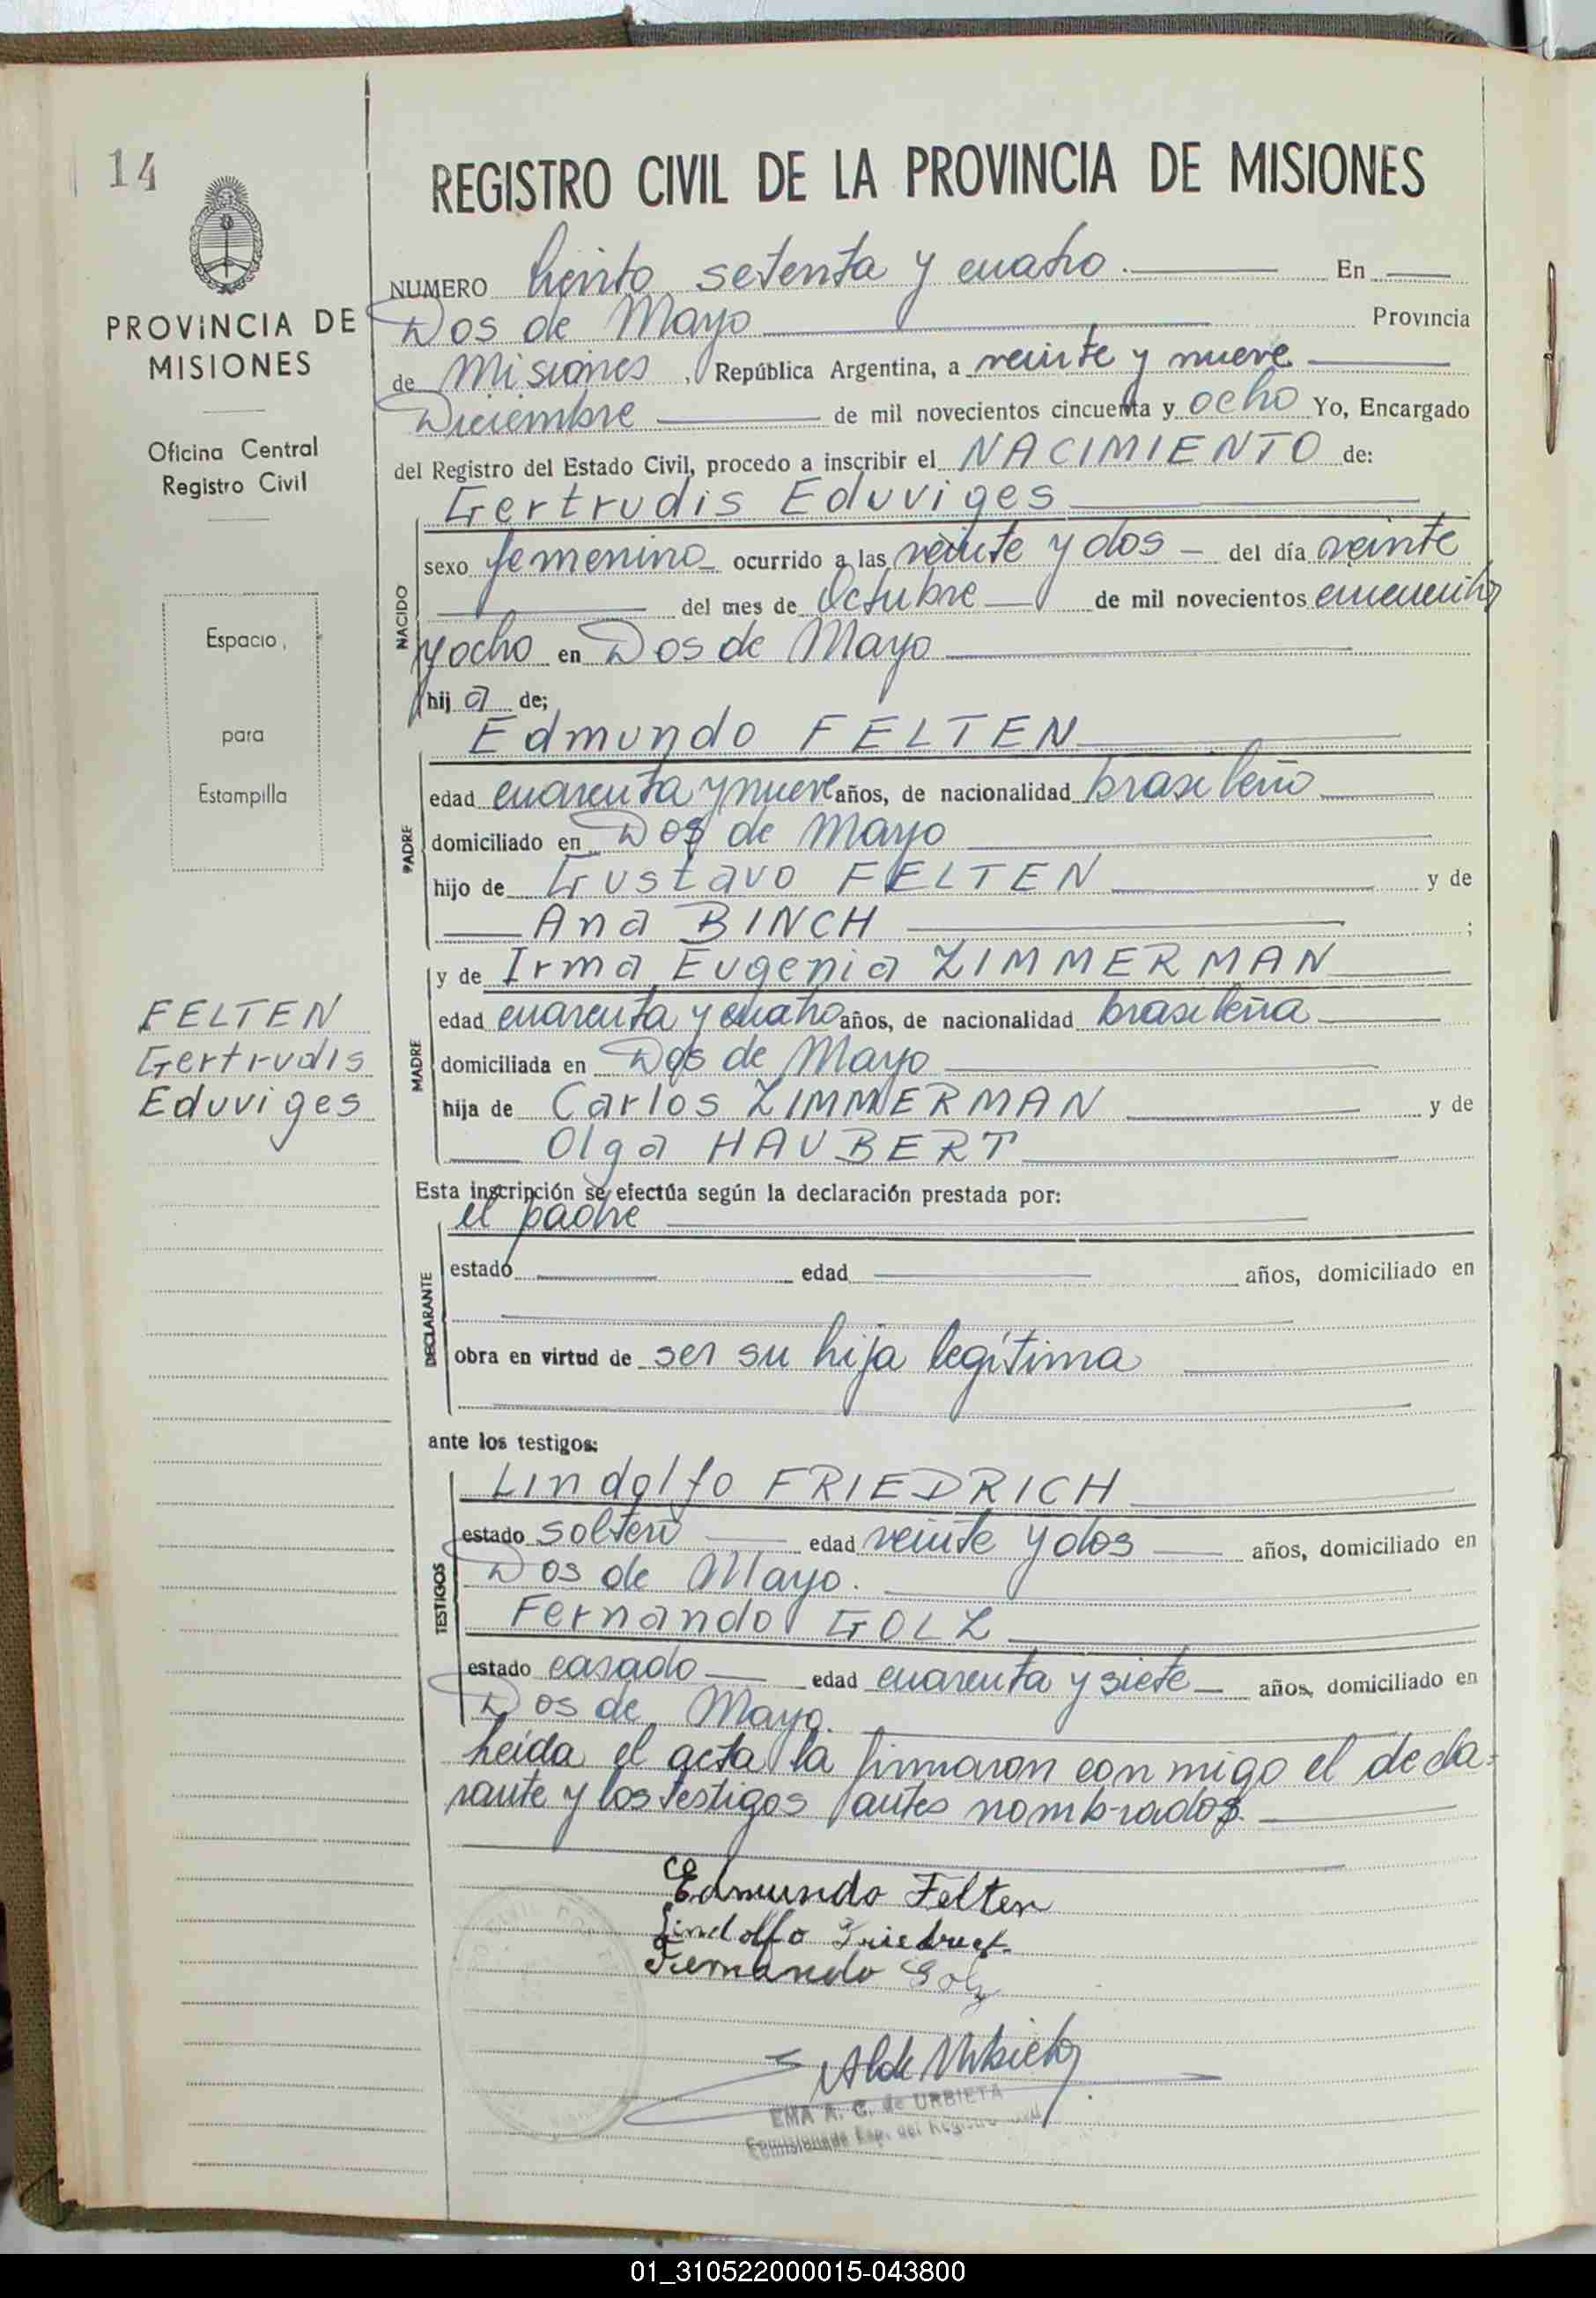 14
PROVINCIA DE
MISIONES
Oficina Central
Registro Civil
Espacio
para
Estampilla
FELTEN
Gertrudis
Eduviges
REGISTRO CIVIL DE LA PROVINCIA DE MISIONES
NUMERO Ciento setenta y cuatro. En
Dos de Mayo Provincia
de Misiones, República Argentina, a veinte y nueve
Diciembre de mil novecientos cincuenta y ocho Yo, Encargado
del Registro del Estado Civil, procedo a inscribir el NACIMIENTO de:
Gertrudis Eduviges
NACIDO
sexo femenino ocurrido a las veinte y dos del día veinte
del mes de Octubre de mil novecientos cincuenta
y ocho en Dos de Mayo
hij a de;
PADRE
Edmundo FELTEN
edad cuarenta y nueve años, de nacionalidad brasileño
domiciliado en Dos de Mayo
hijo de Gustavo FELTEN y de
Ana BINCH ;
MADRE
y de Irma Eugenia ZIMMERMAN
edad cuarenta y cuatro años, de nacionalidad brasileña
domiciliada en Dos de Mayo
hija de Carlos ZIMMERMAN y de
Olga HAUBERT
Esta inscripción se efectúa según la declaración prestada por:
DECLARANTE
el padre
estado edad años, domiciliado en
obra en virtud de ser su hija legítima
ante los testigos:
TESTIGOS
Lindolfo FRIEDRICH
estado soltero edad veinte y dos años, domiciliado en
Dos de Mayo.
Fernando GOLZ
estado casado edad cuarenta y siete años, domiciliado en
Dos de Mayo.
Leída el acta la firmaron conmigo el decla-
rante y los testigos antes nombrados.
Edmundo Felten
Lindolfo
Fernando Golz
EMA A. C. de URBIETA
01_310522000015-043800